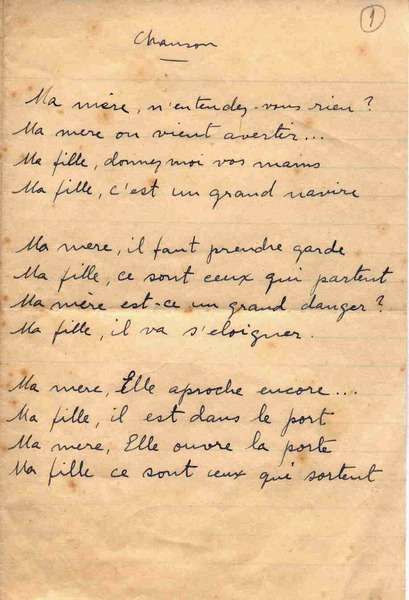 1
Chanson
Ma mère, n'entendez-vous rien ?
Ma mere on vient avertir...
Ma fille, donnez moi vos mains
Ma fille, c'est un grand navire
Ma mere, il faut prendre garde
Ma fille, ce sont ceux qui partent
Ma mère est-ce un grand danger ?
Ma fille, il va s'eloigner.
Ma mere, Elle aproche encore...
Ma fille, il est dans le port
Ma mere, Elle ouvre la porte
Ma fille ce sont ceux qui sortent